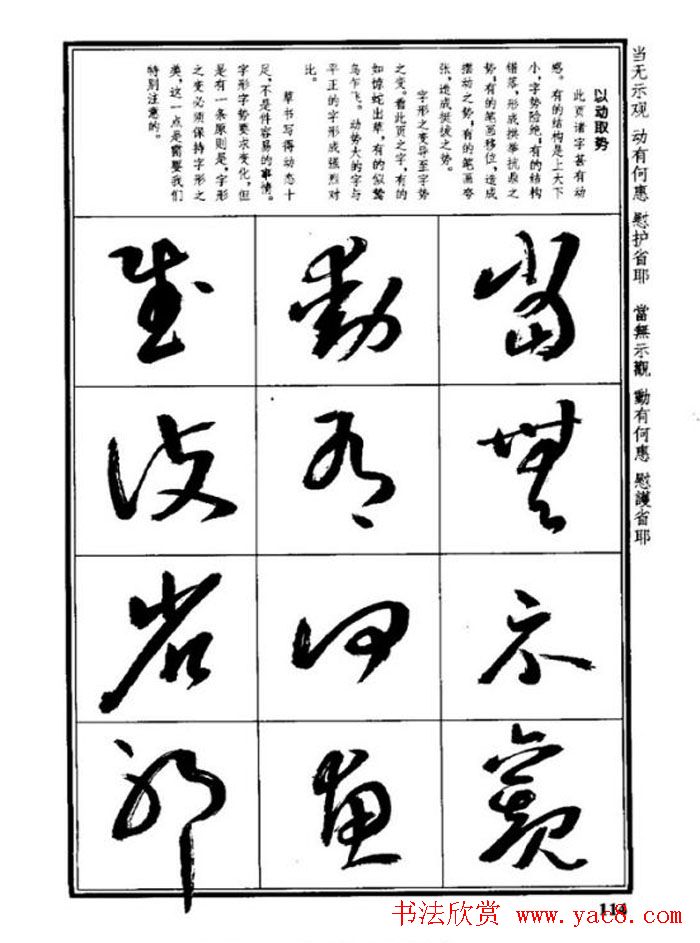 当无示观 动有何惠 慰护省耶 當無示觀 動有何惠 慰護省耶
以动取势
此页诸字甚有动
感。有的结构是上大下
小，字势险绝；有的结构
错落，形成拱举抗鼎之
势；有的笔画移位，造成
摆动之势；有的笔画夸
张，造成挺拔之势。
字形之变导至字势
之变。看此页之字，有的
如惊蛇出草，有的似鸷
鸟乍飞。动势大的字与
平正的字形成强烈对
比。
草书写得动态十
足，不是件容易的事情。
字形字势要求变化，但
是有一条原则是，字形
之变必须保持字形之
美，这一点是需要我们
特别注意的。
當無示觀
動有何惠
慰護省耶
114
书法欣赏 www.yac8.com